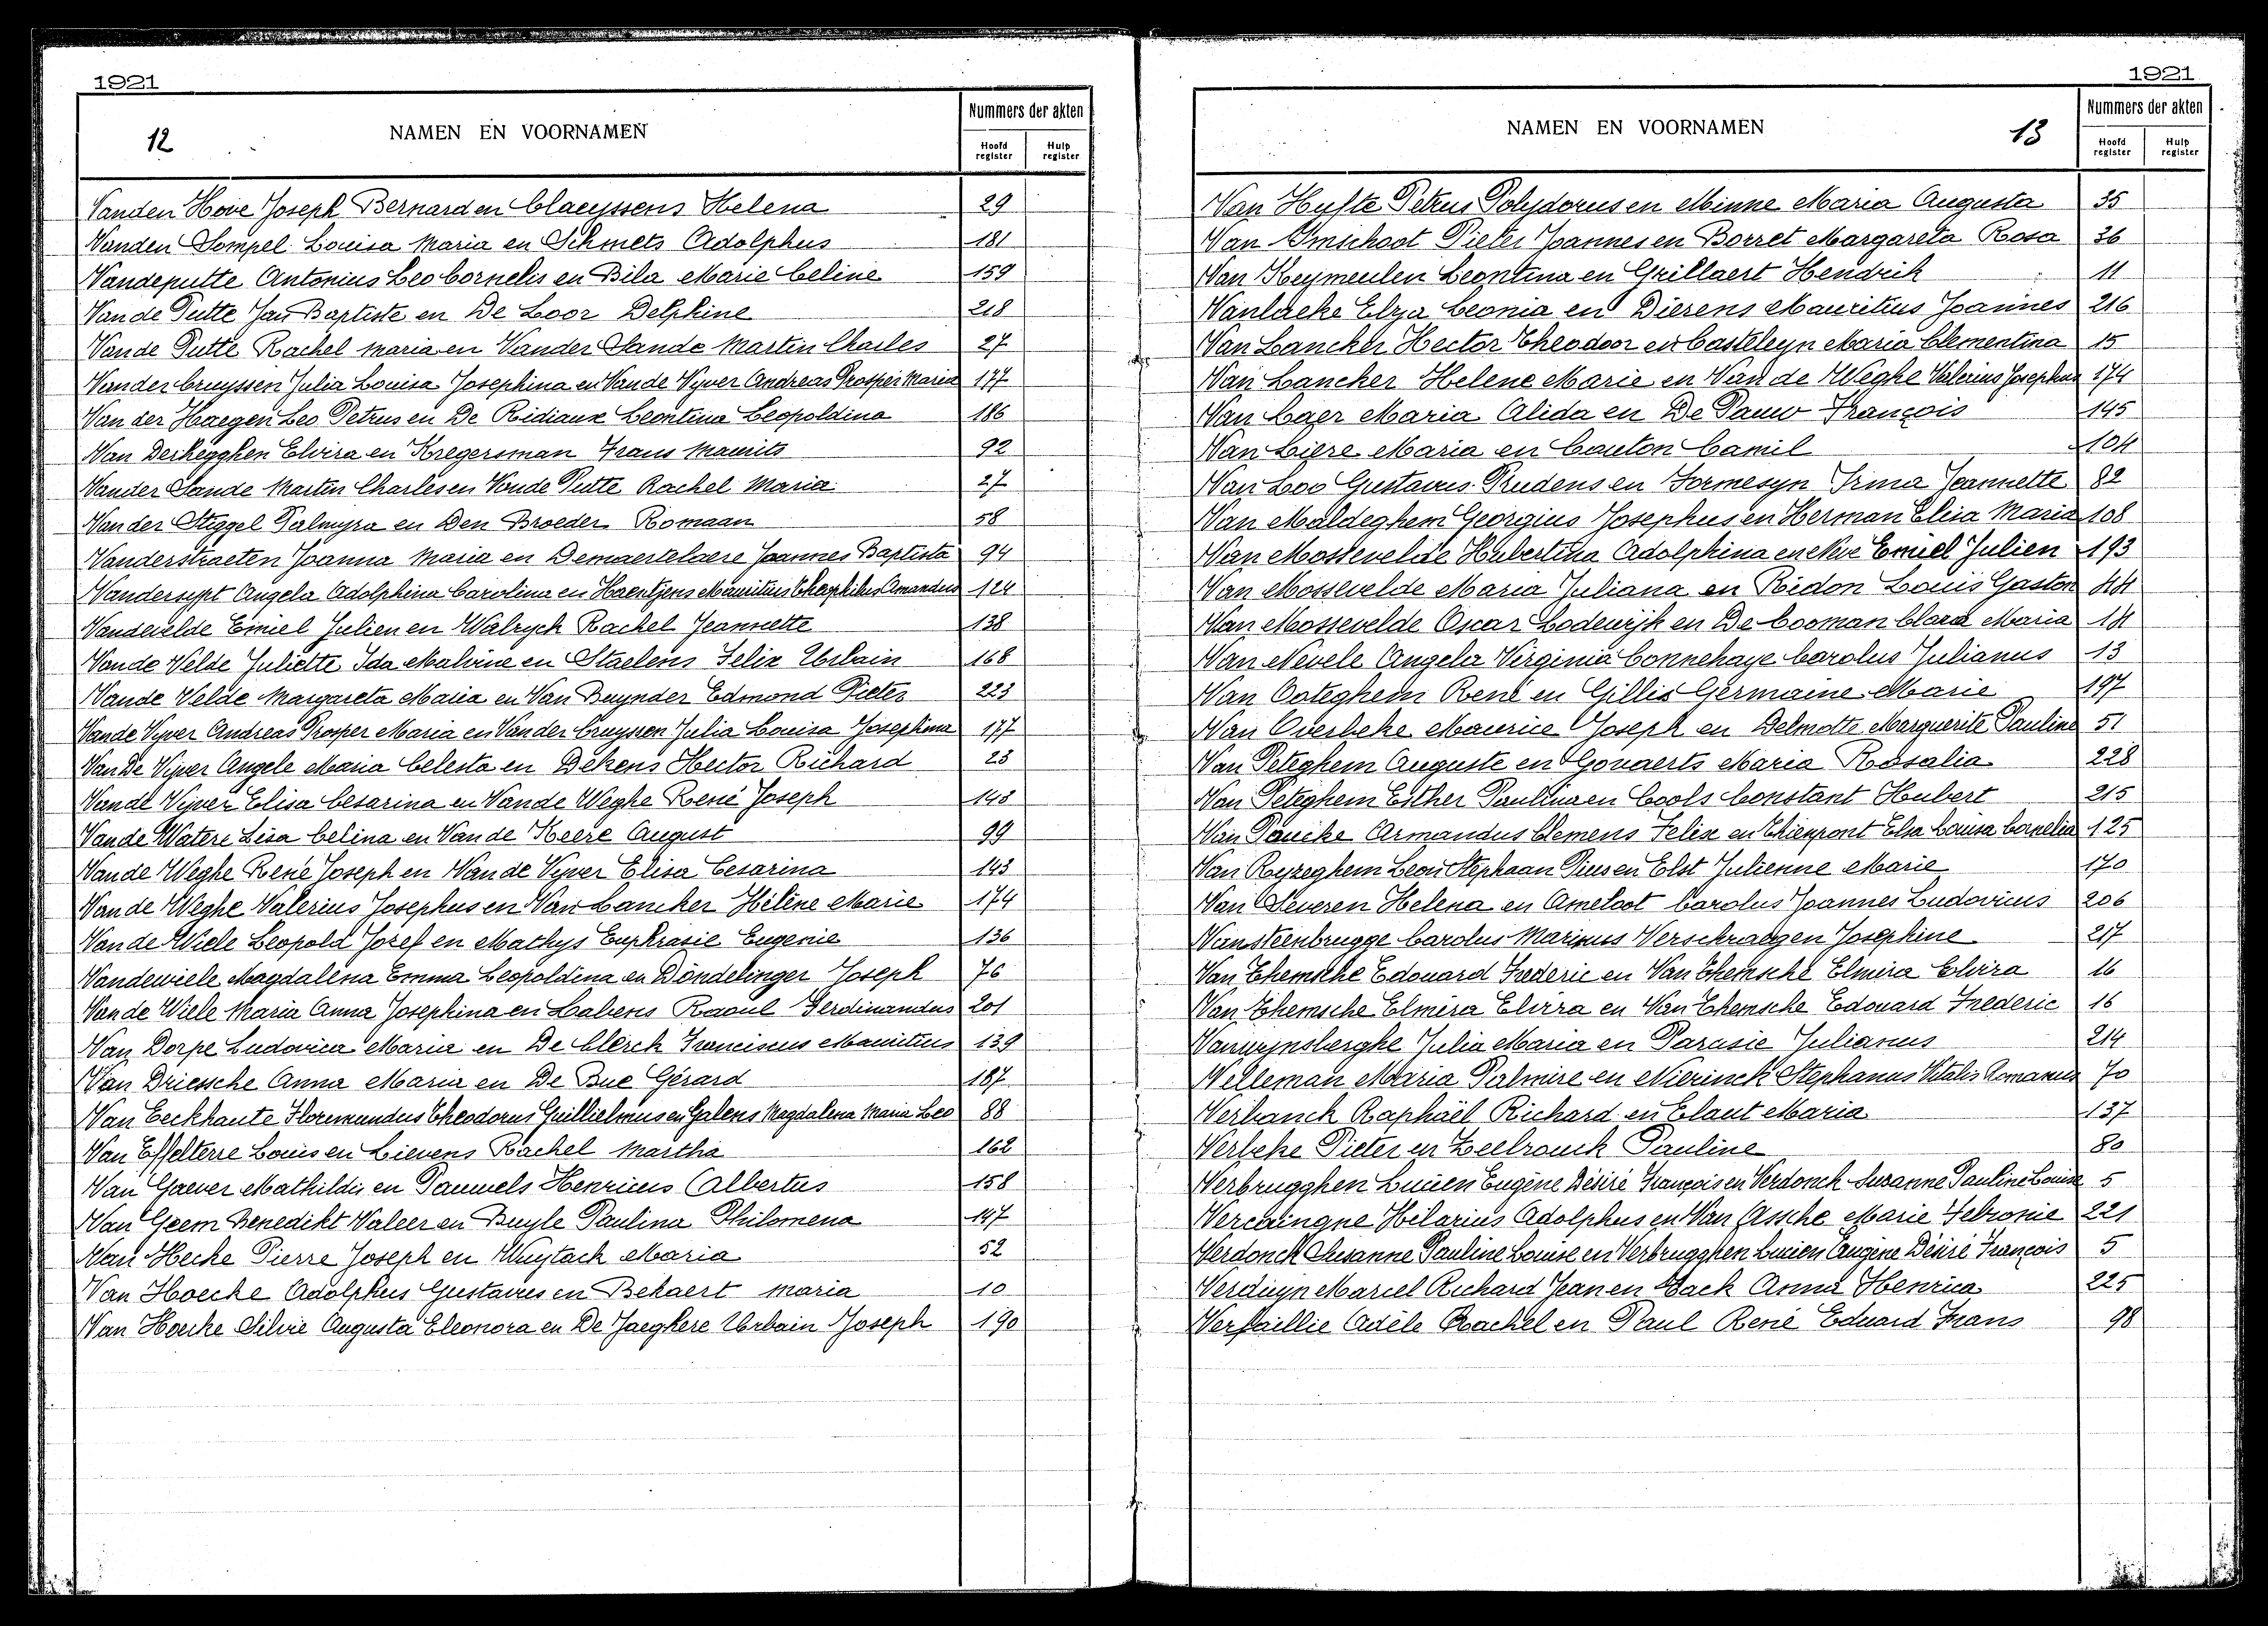 1921
12
NAMEN EN VOORNAMEN
Nummers der akten
Hoofd register
Hulp register
Vanden Hove Joseph Bernard en Claeyssens Helena 29
Vanden Sompel Louisa Maria en Schmets Adolphus 181
Vandeputte Antonius Leo Cornelis en Bila Marie Celine 159
Van de Putte Jan Baptiste en De Loor Delphine 218
Van de Putte Rachel Maria en Vander Sande Martin Charles 27
Vander Cruyssen Julia Louisa Josephina en Van de Vyver Andreas Prosper Maria 177
Van der Haegen Leo Petrus en De Ridiaux Leontina Leopoldina 186
Van Derhegghen Elvira en Kregersman Frans Maurits 92
Vander Sande Martin Charles en Van de Putte Rachel Maria 27
Van der Stiggel Palmyra en Den Broeder Romaan 58
Vanderstraeten Joanna Maria en Demaertelaere Joannes Baptista 94
Vandersypt Angela Adolphina Carolina en Haentjens Mauritius Theophilus Amandus 124
Vandevelde Emiel Julien en Walryck Rachel Jeannette 138
Van de Velde Juliette Ida Malvine en Staelens Felix Urbain 168
Van de Velde Margareta Maria en Van Buynder Edmond Pieter 223
Van de Vyver Andreas Prosper Maria en Vander Cruyssen Julia Louisa Josephina 177
Van De Vyver Angele Maria Celesta en Dekens Hector Richard 23
Van de Vyver Elisa Cesarina en Van de Weghe René Joseph 143
Van de Watere Lea Celina en Van de Keere August 99
Van de Weghe René Joseph en Van de Vyver Elisa Cesarina 143
Van de Weghe Valerius Josephus en Van Lancker Hélène Marie 174
Van de Wiele Leopold Jozef en Mathys Euphrasie Eugenie 136
Vandewiele Magdalena Emma Leopoldina en Dondelinger Joseph 76
Van de Wiele Maria Anna Josephina en Laberes Raoul Ferdinandus 201
Van Dorpe Ludovica Maria en De Clerck Franciscus Mauritius 139
Van Driessche Anna Maria en De Bue Gérard 187
Van Eeckhaute Floremundus Theodorus Guillielmus en Galens Magdalena Maria Leo 88
Van Effelterre Louis en Lievens Rachel Martha 162
Van Gaever Mathildis en Pauwels Henricus Albertus 158
Van Geem Benedikt Valeer en Buyle Paulina Philomena 147
Van Hecke Pierre Joseph en Wuytack Maria 52
Van Hoecke Adolphus Gustavus en Bekaert Maria 10
Van Hoecke Silvie Augusta Eleonora en De Jaeghere Urbain Joseph 190
1921
NAMEN EN VOORNAMEN
13
Nummers der akten
Hoofd register
Hulp register
Van Hyfte Petrus Polydorus en Minne Maria Augusta 35
Van Imschoot Pieter Joannes en Borret Margareta Rosa 36
Van Keymeulen Leontina en Grillaert Hendrik 11
Vanlaeke Elza Leonia en Dierens Mauritius Joannes 216
Van Lancker Hector Theodoor en Casteleyn Maria Clementina 15
Van Lancker Helene Marie en Van de Weghe Valerius Josephus 174
Van Laer Maria Alida en De Pauw François 145
Van Liere Maria en Couton Camil 104
Van Loo Gustavus Prudens en Formesyn Irma Jeannette 82
Van Maldeghem Georgius Josephus en Herman Elisa Maria 108
Van Mossevelde Hubertina Adolphina en Nve Emiel Julien 193
Van Mossevelde Maria Juliana en Ridon Louis Gaston 44
Van Mossevelde Oscar Lodewijk en De Cooman Clara Maria 14
Van Nevele Angela Virginia Connehaye Carolus Julianus 13
Van Ooteghem René en Gillis Germaine Marie 197
Van Overbeke Maurice Joseph en Delmotte Marguerite Pauline 51
Van Peteghem Auguste en Govaerts Maria Rosalia 228
Van Peteghem Esther Paulina en Cools Constant Hubert 215
Van Poucke Armandus Clemens Felix en Thienpont Elsa Louisa Cornelia 125
Van Royzeghem Leon Stephaan Pius en Elst Julienne Marie 170
Van Severen Helena en Ameloot Carolus Joannes Ludovicus 206
Vansteenbrugge Carolus Marinus Verschraegen Josephine 217
Van Themsche Edouard Frederic en Van Themsche Elmira Elvira 16
Van Themsche Elmira Elvira en Van Themsche Edouard Frederic 16
Vanwynsberghe Julia Maria en Parasie Julianus 214
Velleman Maria Palmire en Nierinck Stephanus Vitalis Romanus 70
Verbanck Raphaël Richard en Elaut Maria 137
Verbeke Pieter en Leelrouck Pauline 80
Verbrugghen Lucien Eugène Désiré François en Verdonck Suzanne Pauline Louise 5
Vercaingne Hilarius Adolphus en Van Assche Marie Febronie 221
Verdonck Susanne Pauline Louise en Verbrugghen Lucien Eugène Désiré François 5
Verduyn Marcel Richard Jean en Hack Anna Henrica 225
Verfaillie Adèle Rachel en Paul René Eduard Frans 98